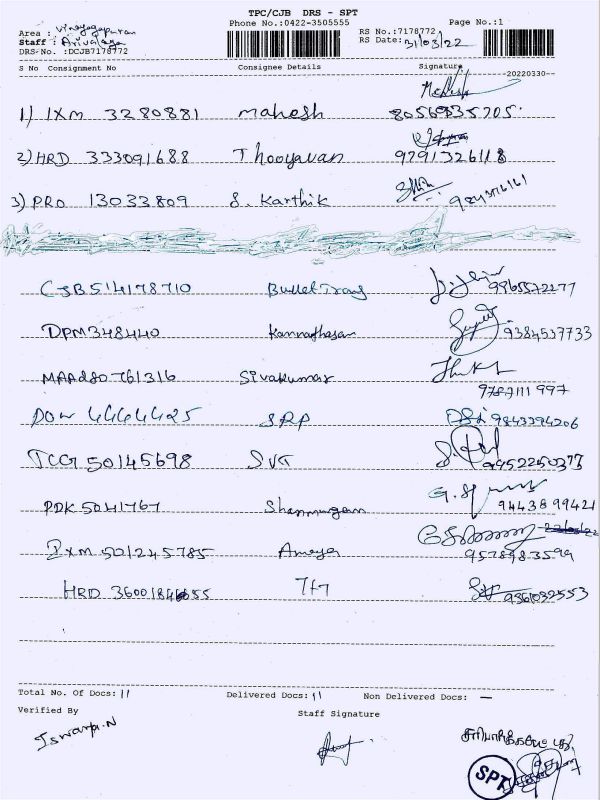 TPC/CJB DRS - SPT
Phone No.:0422-3505555 Page No.:1
Area : Vinayagapuram RS No.:7178772
Staff : Arivalaga RS Date: 31/03/22
DRS/No. :DCJB7178772
S No Consignment No Consignee Details Signature
--20220330--
1) IXM 3280881 Mahesh 8056935705
2) HRD 333091688 Thooyavan 9791326118
3) PRO 13033809 S. Karthik
CJB514178710 Bullet Trans 9965572277
DPM348440 Kannathasan 9384537733
MAA280761316 Sivakumar 9787111 997
DOW 4444425 SRP 9843394206
TCG 50145698 SVT 9952250377
PDK 5041767 Shanmugam 94438 99421
IXM 501245785 Ameya 9578983599
HRD 360018 055 7+7 9361032553
Total No. Of Docs: 11 Delivered Docs: 11 Non Delivered Docs: —
Verified By Staff Signature
Iswarya.N
SPT